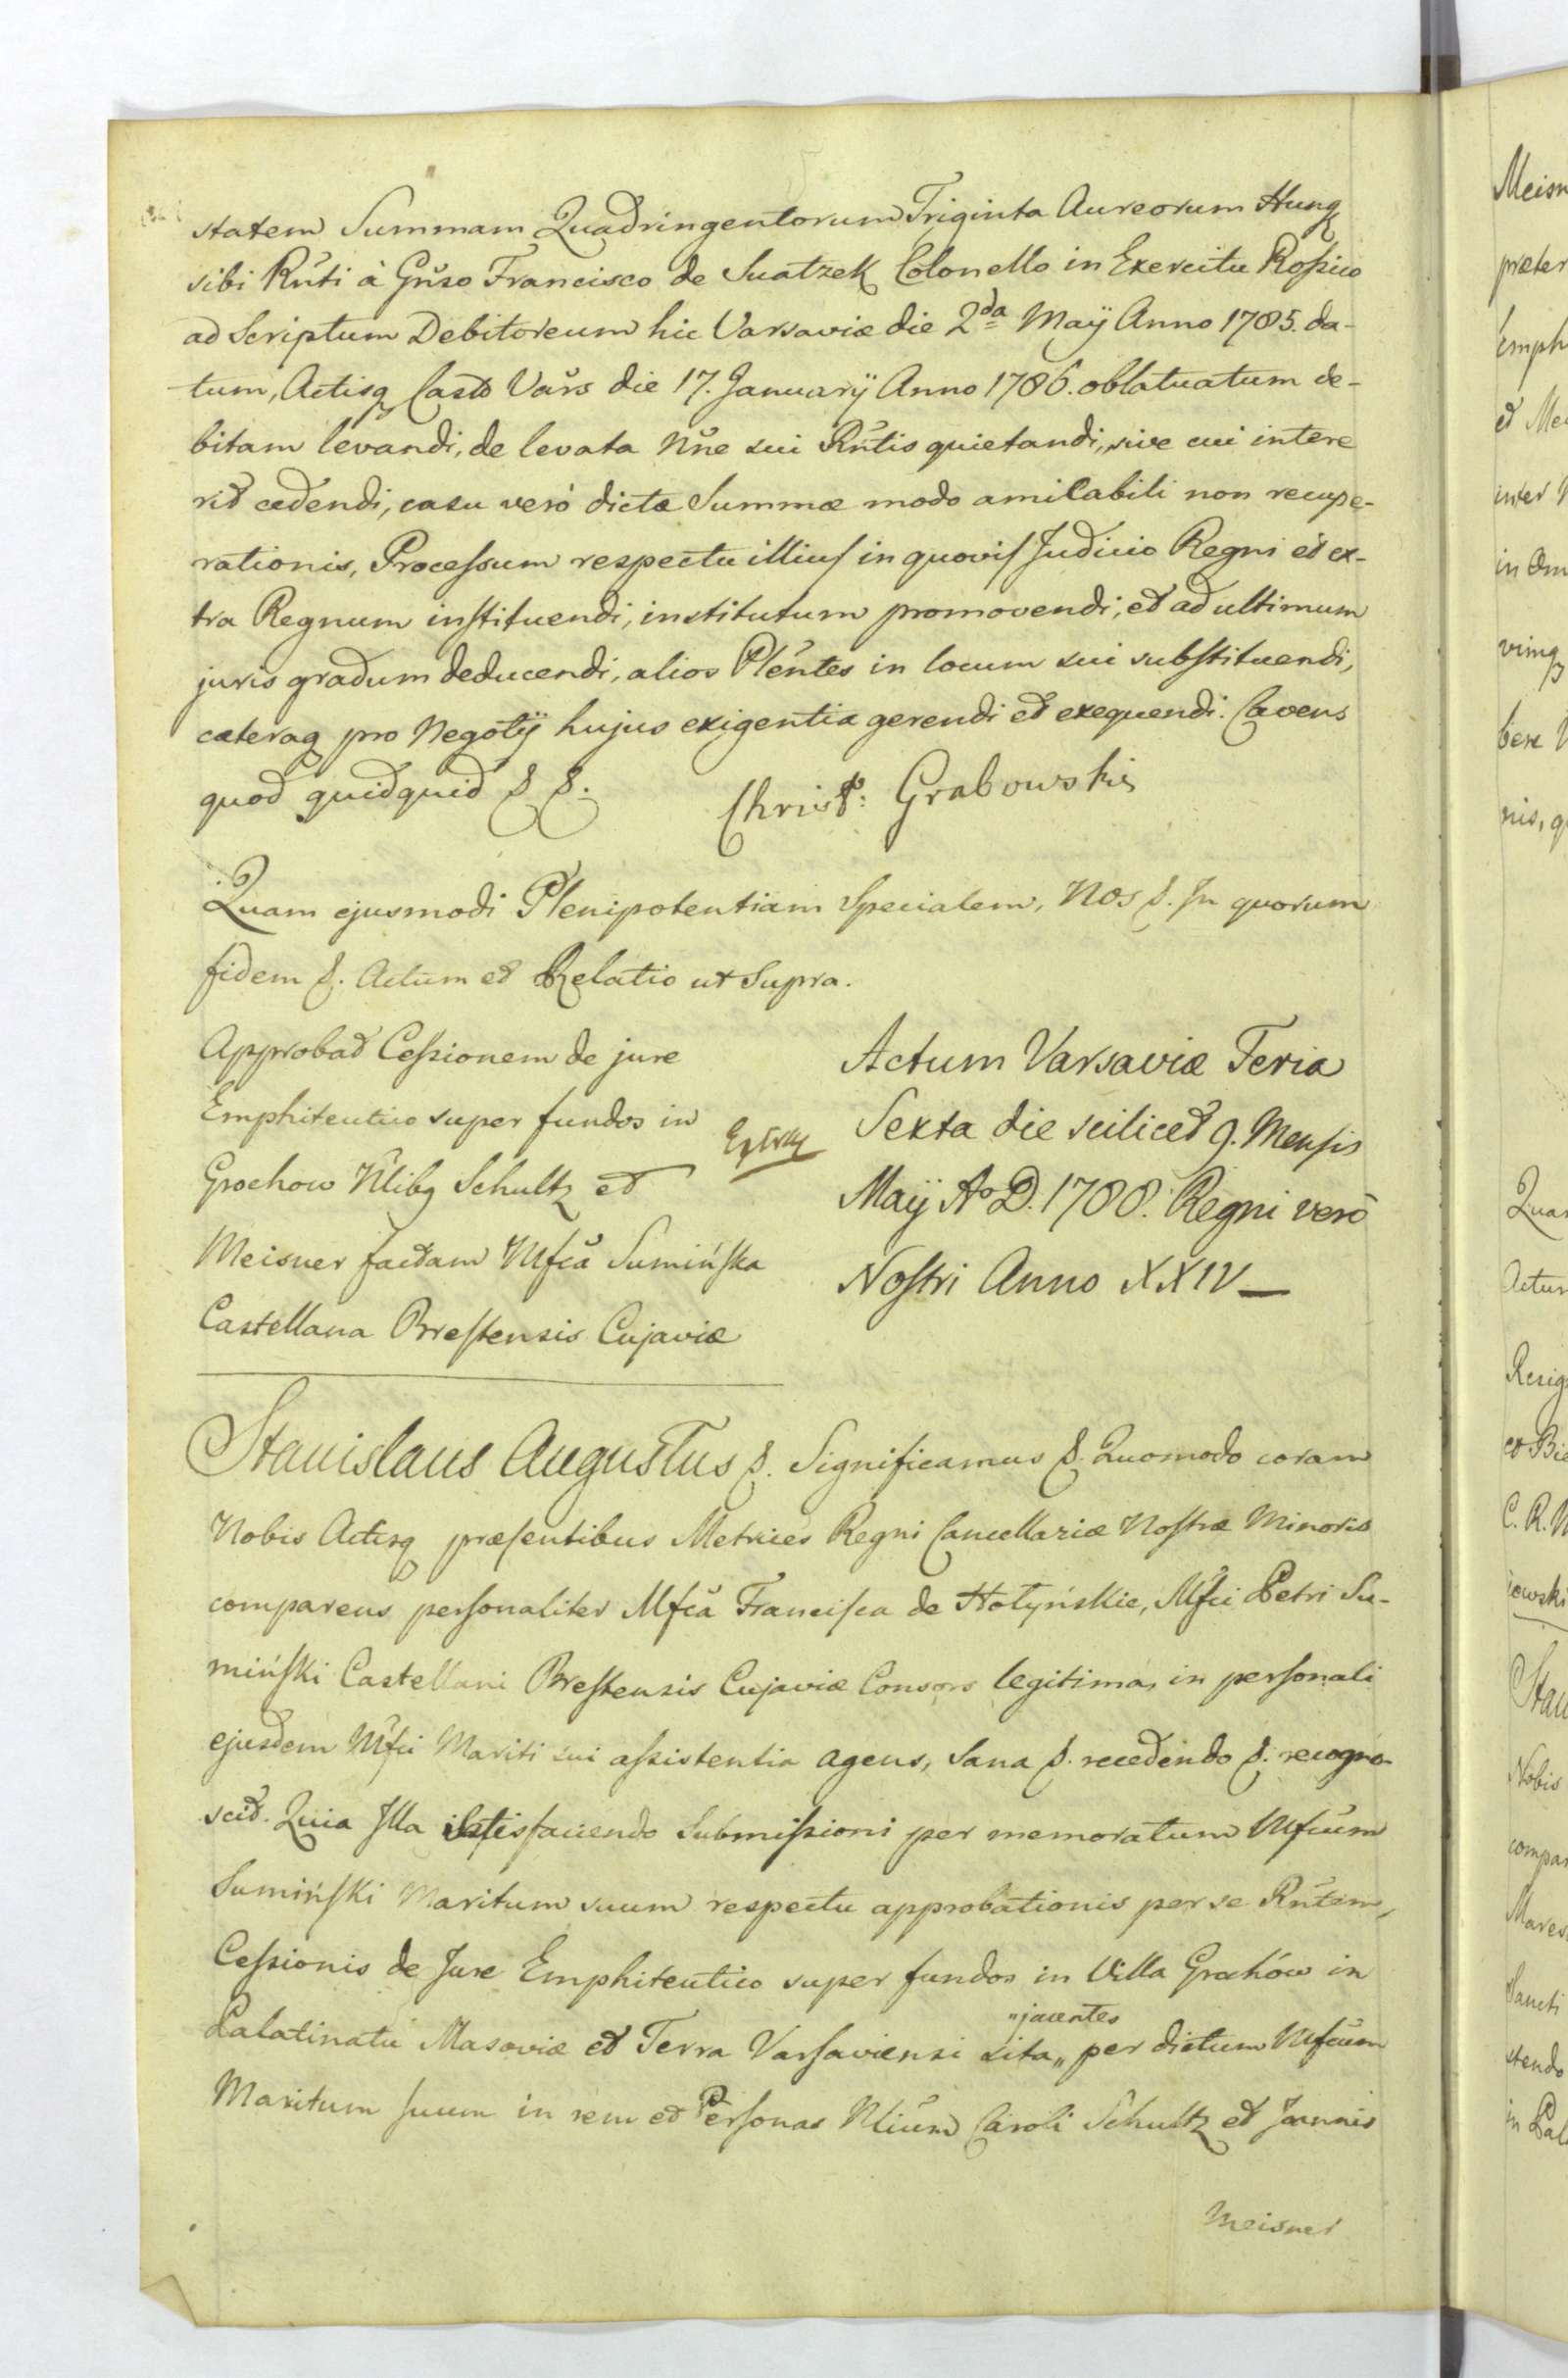 statem Summam Quadringentorum Triginta Aureorum Hungq
sibi Rñti à Gñso Francisco de Suatzek Colonello in Exercitu Rossico
ad Scriptum Debitoreum hic Varsaviæ die 2da Maÿ Anno 1785. da-
tum, Actisq Castr Vars die 17. Januarÿ Anno 1786. oblatuatum de-
bitam levandi, de levata Nñe sui Rñtis quietandi, sive cui intere
rit cedendi, casu veró dictæ Summæ modo amicabili non recupe-
rationis, Processum respectu illius in quovis Judicio Regni et ex-
tra Regnum instituendi, institutum promovendi, et ad ultimum
juris gradum deducendi, alios Plëntes in locum sui substituendi,
cæteraq pro Negotÿ hujus exigentia gerendi et exequendi. Cavens
quod quidquid &. &.
Christ: Grabowski
Quam ejusmodi Plenipotentiam Specialem, Nos &. In quorum
fidem &. Actum et Relatio ut Supra.
Approbat Cessionem de jure
Emphiteutico super fundos in
Grochow Nlibq Schultz et
Meisner factam Mfca Sumińska
Castellana Brestensis Cujaviæ
Actum Varsaviæ Feria
Sexta die scilicet 9. Mensis
Maÿ Ao D. 1788. Regni veró
Nostri Anno XXIV
Stanislaus Augustus &. Significamus &. Quomodo coram
Nobis Actisq præsentibus Metrices Regni Cancellariæ Nostræ Minoris
comparens personaliter Mfca Francisca de Hołyńskie, Mfci Petri Su-
miński Castellani Brestensis Cujaviæ Consors legitima, in personali
ejusdem Mfci Mariti sui assistentia agens, Sana &. recedendo &. recogno-
scit. Quia Illa satisfaciendo Submissioni per memoratum Mfcum
Sumiński Maritum suum respectu approbationis per se Rñtem,
Cessionis de Jure Emphiteutico super fundos in Villa Grochów in
Palatinatu Masoviæ et Terra Varsaviensi sita „jacentes per dictum Mfcum
Maritum suum in rem et Personas Nlium Caroli Schultz et Joannis
Meisner